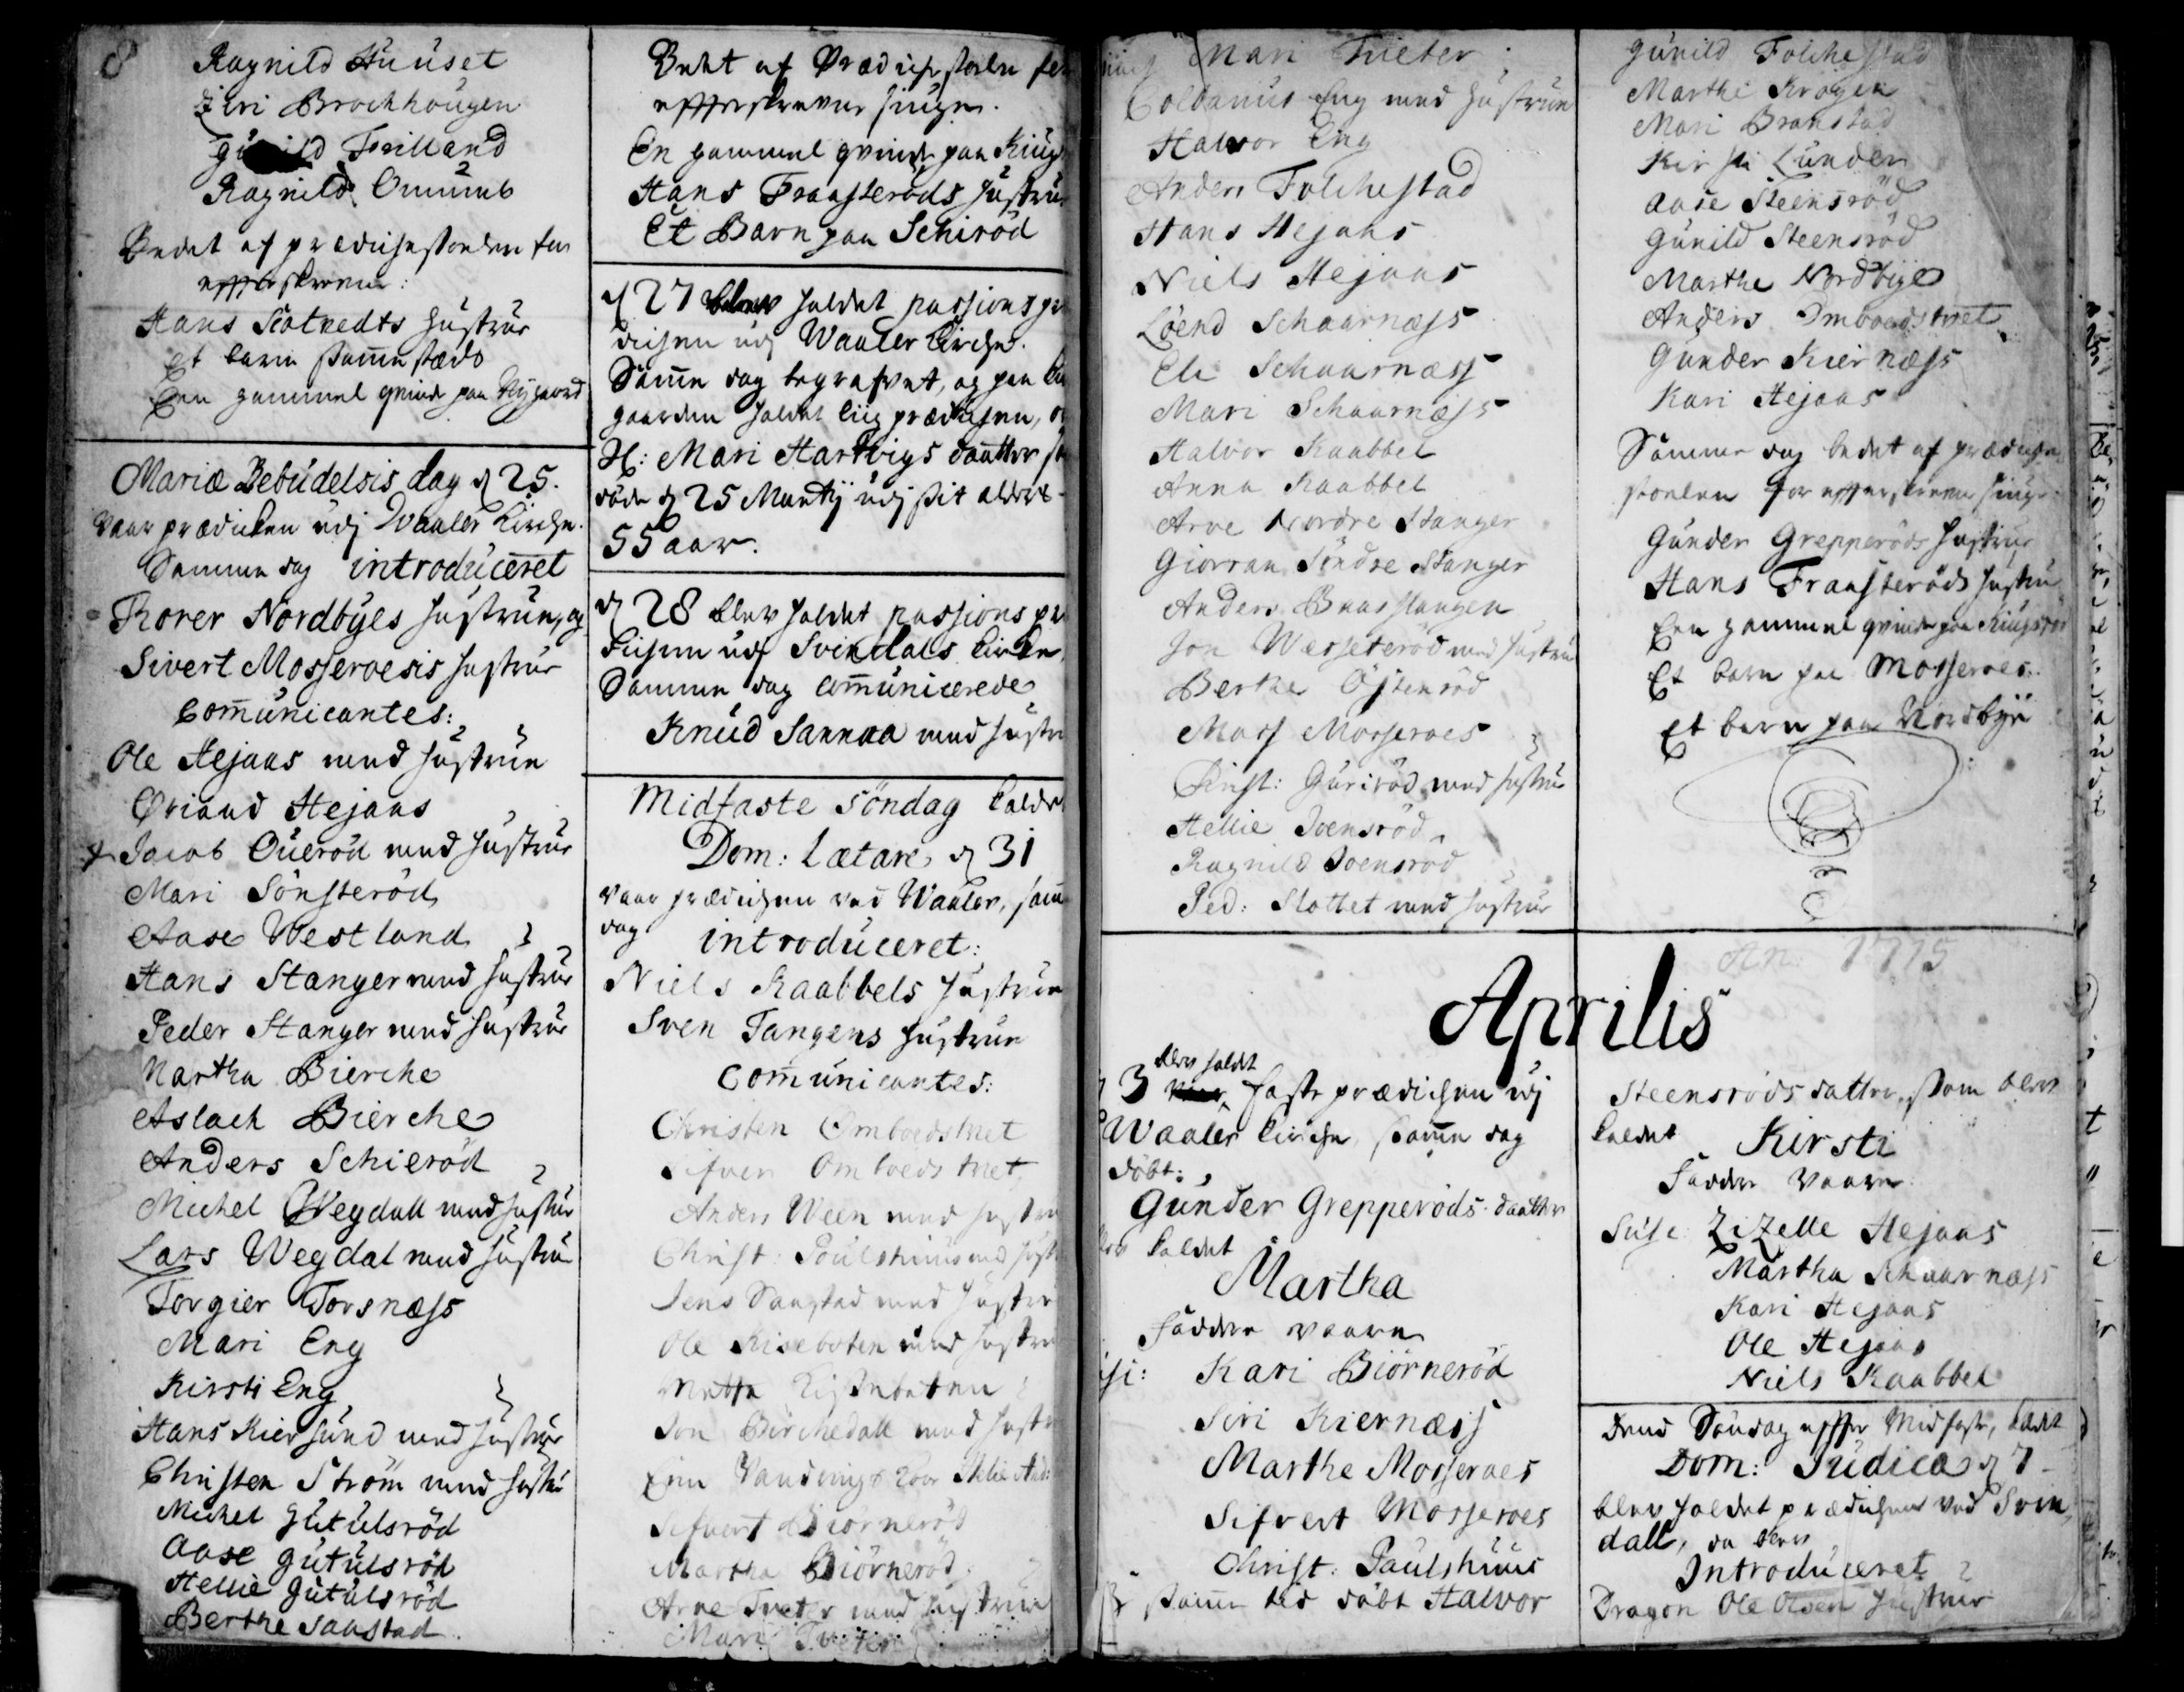 8
Ragnild Huuset
Siri Brochhougen
Frilland
Ragnild
Bedet af prædichestoelen for
effterskrevne:
Hans Slotnedts Hustrue
Et barn sammestæds
Een gammel qvinde paa Nygaard
Mariæ Bebudelsis dag d 25.
vaar prædicken udj Waaler Kirche.
Samme dag introduceret
Thorer Nordbyes Hustrue, og
Sivert Mosseroesis Hustrue
Communicantes:
Ole Hejaas med Hustrue
Øriand Hejaas
Jacob Ouerød med Hustrue
Mari Sønsterød
Aase Westland
Hans Stanger med Hustrue
Peder Stanger med Hustrue
Martha Bierche
Aslach Bierche
Anders Schierød
Michel Wegdall med Hustrue
Lars Wegdal med Hustrue
Torgier Torsnæss
Mari Eng
Kirsti Eng
Hans Kiersund med Hustrue
Christen Strøm med Hustru
Michel Gutulsrød
Aase Gutulsrød
Hellie Gutulsrød
Berthe Saustad
Bedet af Prædichestoelen for
effterskrevne siuge.
En gammel qvinde paa
Hans Fraasterøds Hustrue
Et Barn paa Schirød
d 27 blev holdet passions præ
dichen udj Waaler Kirche.
Samme dag begravet, og paa
gaarden holdet liig prædichen,
Sl: Mari Hartvigs daatter
døde d 25 Martij udj sit alders
55 aar.
d 28 blev holdet passions præ
dichen udj Svindals Kirche
Samme dag communicerede
Knud Sannaa med Hustrue
Midfaste Søndag kaldet
Dom: Lætare d 31
vaar prædichen ved Waaler, samme
dag introduceret:
Niels Kaabbels Hustrue
Sven Tangens Hustrue
Communicantes:
Christen Omboedstvet
Sifver Omboedstvet
Anders Ween med Hustrue
Christ: Poulshuus med Hust
Jens Saustad med Hustrue
Ole Kiseboten med Hustrue
Jon Birchedall med Hustrue
Sifvert Biørnerød
Martha Biørnerød
Arne Tveter med Hustrue
Mari Tveter
Mari Tveter
Colbanus Eng med Hustrue
Halvor Eng
Anders Folchestad
Hans Hejaas
Niels Hejaas
Løend Schaarnæss
Eli Schaarnæss
Mari Schaarnæss
Halvor Kaabbel
Anna Kaabbel
Arve Nordre Stanger
Giorran Søndre Stanger
Anders Baaslangen
Jon Wesseterød med Hustrue
Berthe Østenrød
Mass Mosseroes
Christ: Gurirød med Hustrue
Hellie Joensrød
Ragnild Joensrød
Ped: Slottet med Hustrue
Gunild Folchestad
Marthe Krogen
Mari Branstad
Kirsti Lunder
Aase Steensrød
Gunild Steensrød
Marthe Nordbye
Anders Omboedstvet
Gunder Kiernæss
Kari Hejaas
Samme dag bedet af prædiche
stoelen for effterskrevne siuge
Gunder Grepperøds Hustrue
Hans Fraasterøds Hustru
Een gammel qvinde paa
Et barn paa Mosseroes.
Et barn paa Nordbye
An: 1715
Aprilis
blev holdt
d 3 faste prædichen udj
Waaler Kirche, samme dag
døbt:
Gunder Grepperøds daatter
blev kaldet
Martha
Faddre vaare
Kari Biørnerød
Siri Kiernæss
Marthe Mosseroes
Sifvert Mosseroes
Christ: Paulshuus
samme tid døbt Halvor
Steensrøds datter, som blev
kaldet Kirsti
Faddre vaare
Zizelle Hejaas
Martha Schaarnæss
Kari Hejaas
Ole Hejaas
Niels Kaabbel
Dend Søndag effter Midfaste, kaldt
Dom: Judica d 7
blev holdet prædichen ved Svin
dall, da blev
Introduceret
Dragon Ole Olsen Hustrue